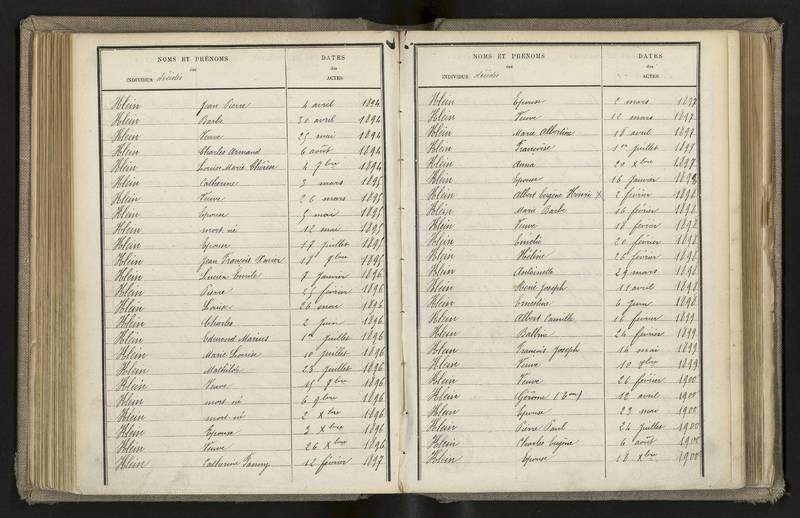 NOMS ET PRÉNOMS DATES
des des
INDIVIDUS décédés ACTES
Klein Jean Pierre 4 avril 1894
Klein Barbe 30 avril 1894
Klein Veuve 25 mai 1894
Klein Charles Armand 6 août 1894
Klein Louise Marie Thérèse 4 9bre 1894
Klein Catherine 3 mars 1895
Klein Veuve 26 mars 1895
Klein Epouse 5 mai 1895
Klein mort-né 12 mai 1895
Klein Epouse 17 juillet 1895
Klein Jean François Xavier 18 9bre 1895
Klein Lucien Emile 7 janvier 1896
Klein Pierre 25 février 1896
Klein Louise 26 mai 1896
Klein Charles 2 juin 1896
Klein Edmond Marius 1er juillet 1896
Klein Marie Louise 10 juillet 1896
Klein Mathilde 23 juillet 1896
Klein Veuve 15 9bre 1896
Klein mort-né 6 9bre 1896
Klein mort-né 2 Xbre 1896
Klein Epouse 3 Xbre 1896
Klein Veuve 26 Xbre 1896
Klein Catherine Fanny 12 février 1897
NOMS ET PRÉNOMS DATES
des des
INDIVIDUS décédés ACTES
Klein Epouse 2 mars 1897
Klein Veuve 12 mars 1897
Klein Marie Albertine 18 avril 1897
Klein Françoise 1er juillet 1897
Klein Anna 20 Xbre 1897
Klein Epouse 15 janvier 1898
Klein Albert Eugène Henri X 2 février 1898
Klein Marie Barbe 16 février 1898
Klein Veuve 18 février 1898
Klein Emélie 20 février 1898
Klein Hélène 26 février 1898
Klein Antoinette 29 mars 1898
Klein René Joseph 11 avril 1898
Klein Ernestine 6 juin 1898
Klein Albert Camille 16 février 1899
Klein Balbine 24 février 1899
Klein François Joseph 16 mai 1899
Klein Veuve 10 1899
Klein Veuve 26 février 1900
Klein Gérome 12 avril 1900
Klein Epouse 23 mai 1900
Klein Pierre Paul 24 juillet 1900
Klein Charles Eugène 6 août 1900
Klein Epouse 18 Xbre 1900